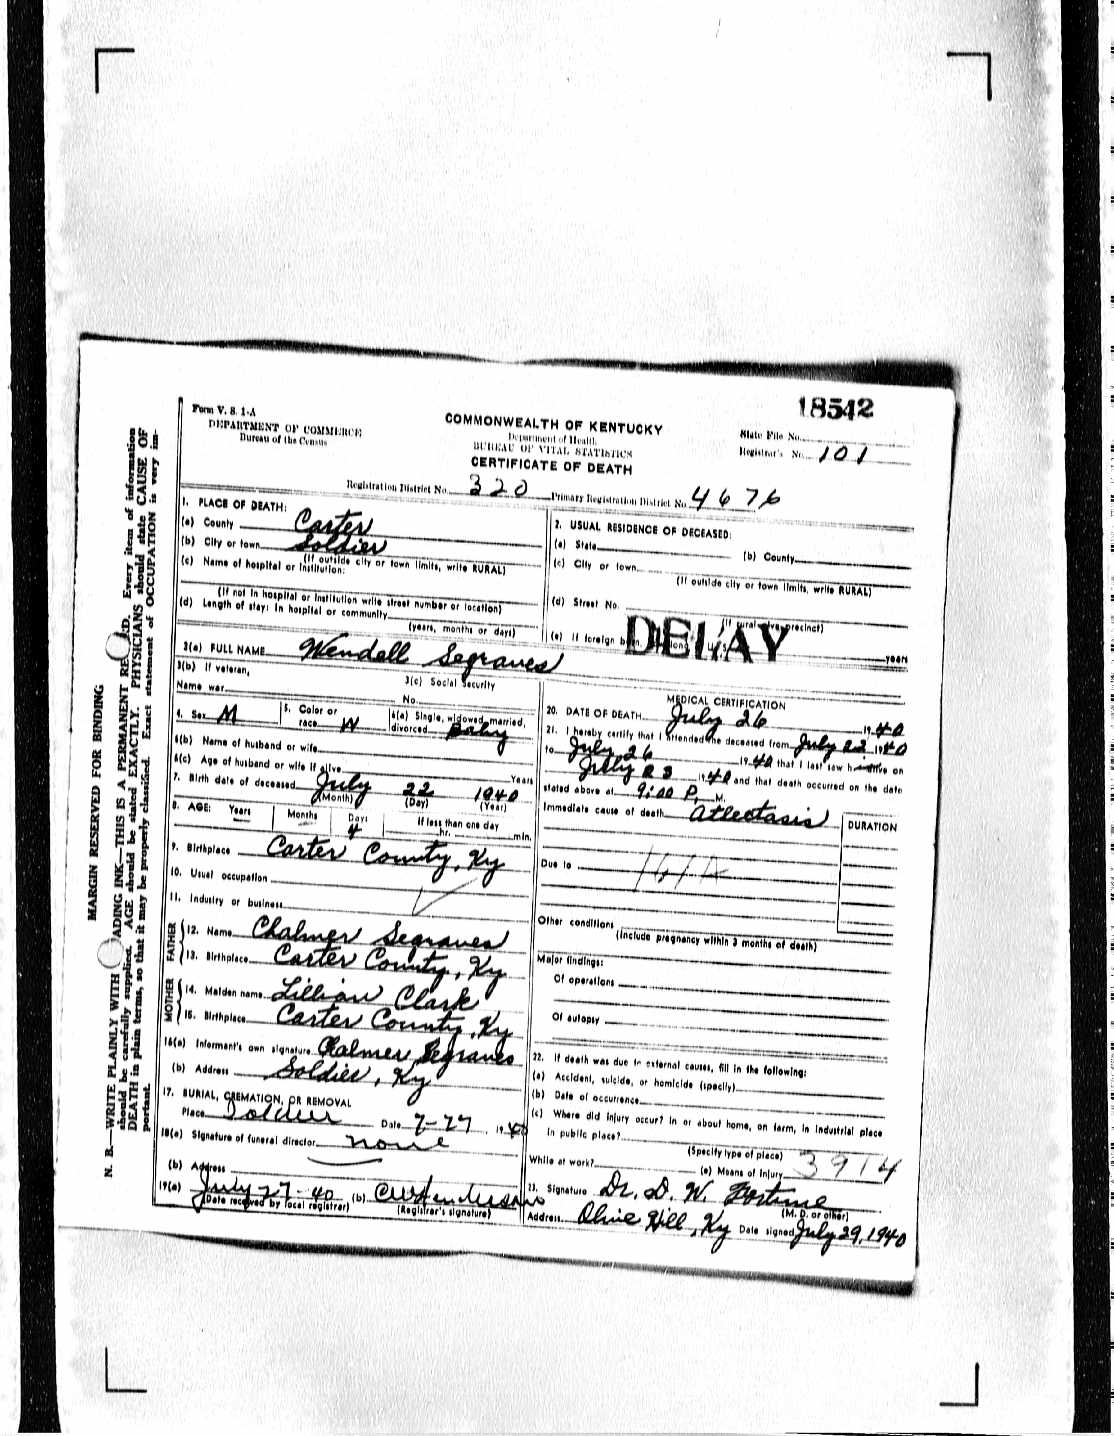 18542
Form V. S. 1-A
DEPARTMENT OF COMMERCE
Bureau of the Census
COMMONWEALTH OF KENTUCKY
Department of Health
BUREAU OF VITAL STATISTICS
CERTIFICATE OF DEATH
State File No.
Registrar's No. 101
Registration District No. 320 Primary Registration District No. 4676
1. PLACE OF DEATH:
(a) County Carter
(b) City or town Soldier
(If outside city or town limits, write RURAL)
(c) Name of hospital or institution:
(If not in hospital or institution write street number or location)
(d) Length of stay: In hospital or community
(years, months or days)
2. USUAL RESIDENCE OF DECEASED:
(a) State (b) County
(c) City or town
(If outside city or town limits, write RURAL)
(d) Street No.
(If rural give precinct)
(e) If foreign born, how long in U. S. years
DELAY
3(a) FULL NAME Wendell Segraves
3(b) If veteran,
Name war
3(c) Social Security
No.
4. Sex M
5. Color or
race W
6(a) Single, widowed, married,
divorced Baby
6(b) Name of husband or wife
6(c) Age of husband or wife if alive Years
7. Birth date of deceased July 22 1940
(Month) (Day) (Year)
8. AGE: Years Months Days If less than one day
4 hr. min.
9. Birthplace Carter County, Ky
10. Usual occupation
11. Industry or business
FATHER
12. Name Chalmer Segraves
13. Birthplace Carter County, Ky
MOTHER
14. Maiden name Lillian Clark
15. Birthplace Carter County, Ky
16(a) Informant's own signature Chalmer Segraves
(b) Address Soldier, Ky
17. BURIAL, CREMATION, OR REMOVAL
Place Soldier Date 7-27, 1940
18(a) Signature of funeral director none
(b) Address
19(a) July 27-40 (b) CW Henderson
(Date received by local registrar) (Registrar's signature)
MEDICAL CERTIFICATION
20. DATE OF DEATH July 26 1940
21. I hereby certify that I attended the deceased from July 22 1940
to July 26 1940 that I last saw h alive on
July 23 1940 and that death occurred on the date
stated above at 9:00 P. M.
Immediate cause of death Atleotasis
DURATION
Due to 161A
Other conditions
(Include pregnancy within 3 months of death)
Major findings:
Of operations
Of autopsy
22. If death was due to external causes, fill in the following:
(a) Accident, suicide, or homicide (specify)
(b) Date of occurrence
(c) Where did injury occur? In or about home, on farm, in industrial place
in public place?
(Specify type of place)
While at work? (e) Means of injury
3914
23. Signature Dr. D. W. Fortune
(M. D. or other)
Address Olive Hill, Ky Date signed July 29, 1940
MARGIN RESERVED FOR BINDING
N. B.—WRITE PLAINLY WITH ADING INK—THIS IS A PERMANENT RE RD. Every item of information
should be carefully supplied. AGE should be stated EXACTLY. PHYSICIANS should state CAUSE OF
DEATH in plain terms, so that it may be properly classified. Exact statement of OCCUPATION is very im-
portant.